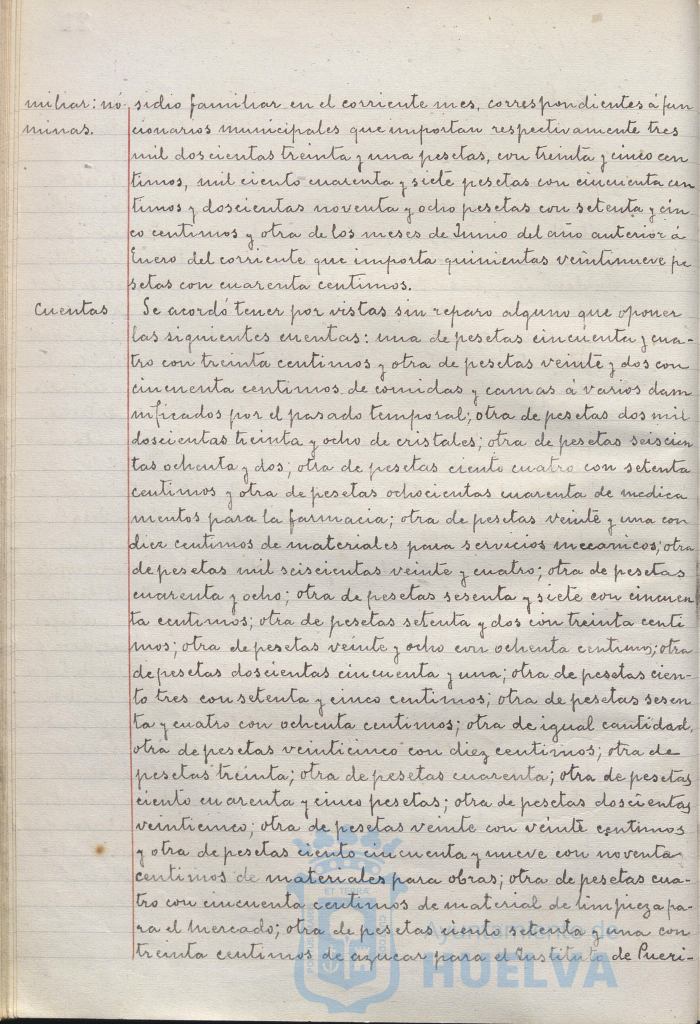 miliar: nó- sidio familiar en el corriente mes, correspondientes á fun
minas. cionarios municipales que importan respectivamente tres
mil doscientas treinta y una pesetas, con treinta y cinco cen
timos, mil ciento cuarenta y siete pesetas con cincuenta cen
timos y doscientas noventa y ocho pesetas con setenta y cin
co centimos y otra de los meses de Junio del año anterior á
Enero del corriente que importa quinientas veintinueve pe
setas con cuarenta centimos.
Cuentas Se acordó tener por vistas sin reparo alguno que oponer
las siguientes cuentas: una de pesetas cincuenta y cua-
tro con treinta centimos y otra de pesetas veinte y dos con
cincuenta centimos de comidas y camas á varios dam
nificados por el pasado temporal; otra de pesetas dos mil
doscientas treinta y ocho de cristales; otra de pesetas seiscien
tas ochenta y dos; otra de pesetas ciento cuatro con setenta
centimos y otra de pesetas ochocientas cuarenta de medica
mentos para la farmacia; otra de pesetas veinte y una con
diez centimos de materiales para servicios mecanicos; otra
de pesetas mil seiscientas veinte y cuatro; otra de pesetas
cuarenta y ocho; otra de pesetas sesenta y siete con cincuen
ta centimos; otra de pesetas setenta y dos con treinta centi
mos; otra de pesetas veinte y ocho con ochenta centimos; otra
de pesetas doscientas cincuenta y una; otra de pesetas cien-
to tres con setenta y cinco centimos; otra de pesetas sesen
ta y cuatro con ochenta centimos; otra de igual cantidad,
otra de pesetas veinticinco con diez centimos; otra de
pesetas treinta; otra de pesetas cuarenta; otra de pesetas
ciento cuarenta y cinco pesetas; otra de pesetas doscientas
veinticinco; otra de pesetas veinte con veinte centimos
y otra de pesetas ciento cincuenta y nueve con noventa
centimos de materiales para obras; otra de pesetas cua-
tro con cincuenta centimos de material de limpieza pa-
ra el mercado; otra de pesetas ciento setenta y una con
treinta centimos de azucar para el Instituto de Pueri-
Ayuntamiento de
HUELVA